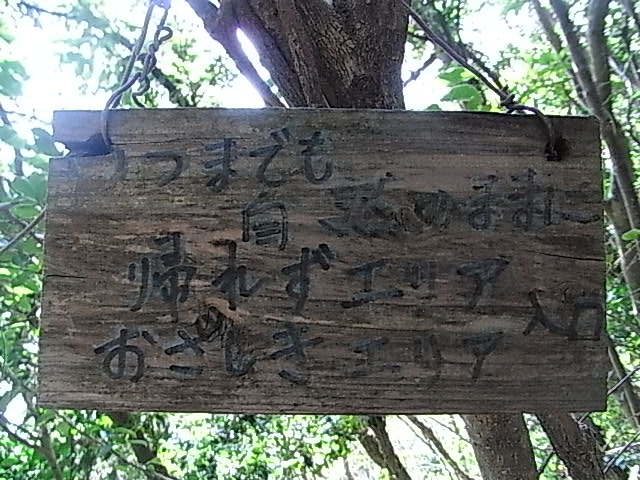 いつまでも
自然のままに
帰れずエリア
おざしきエリア
入口